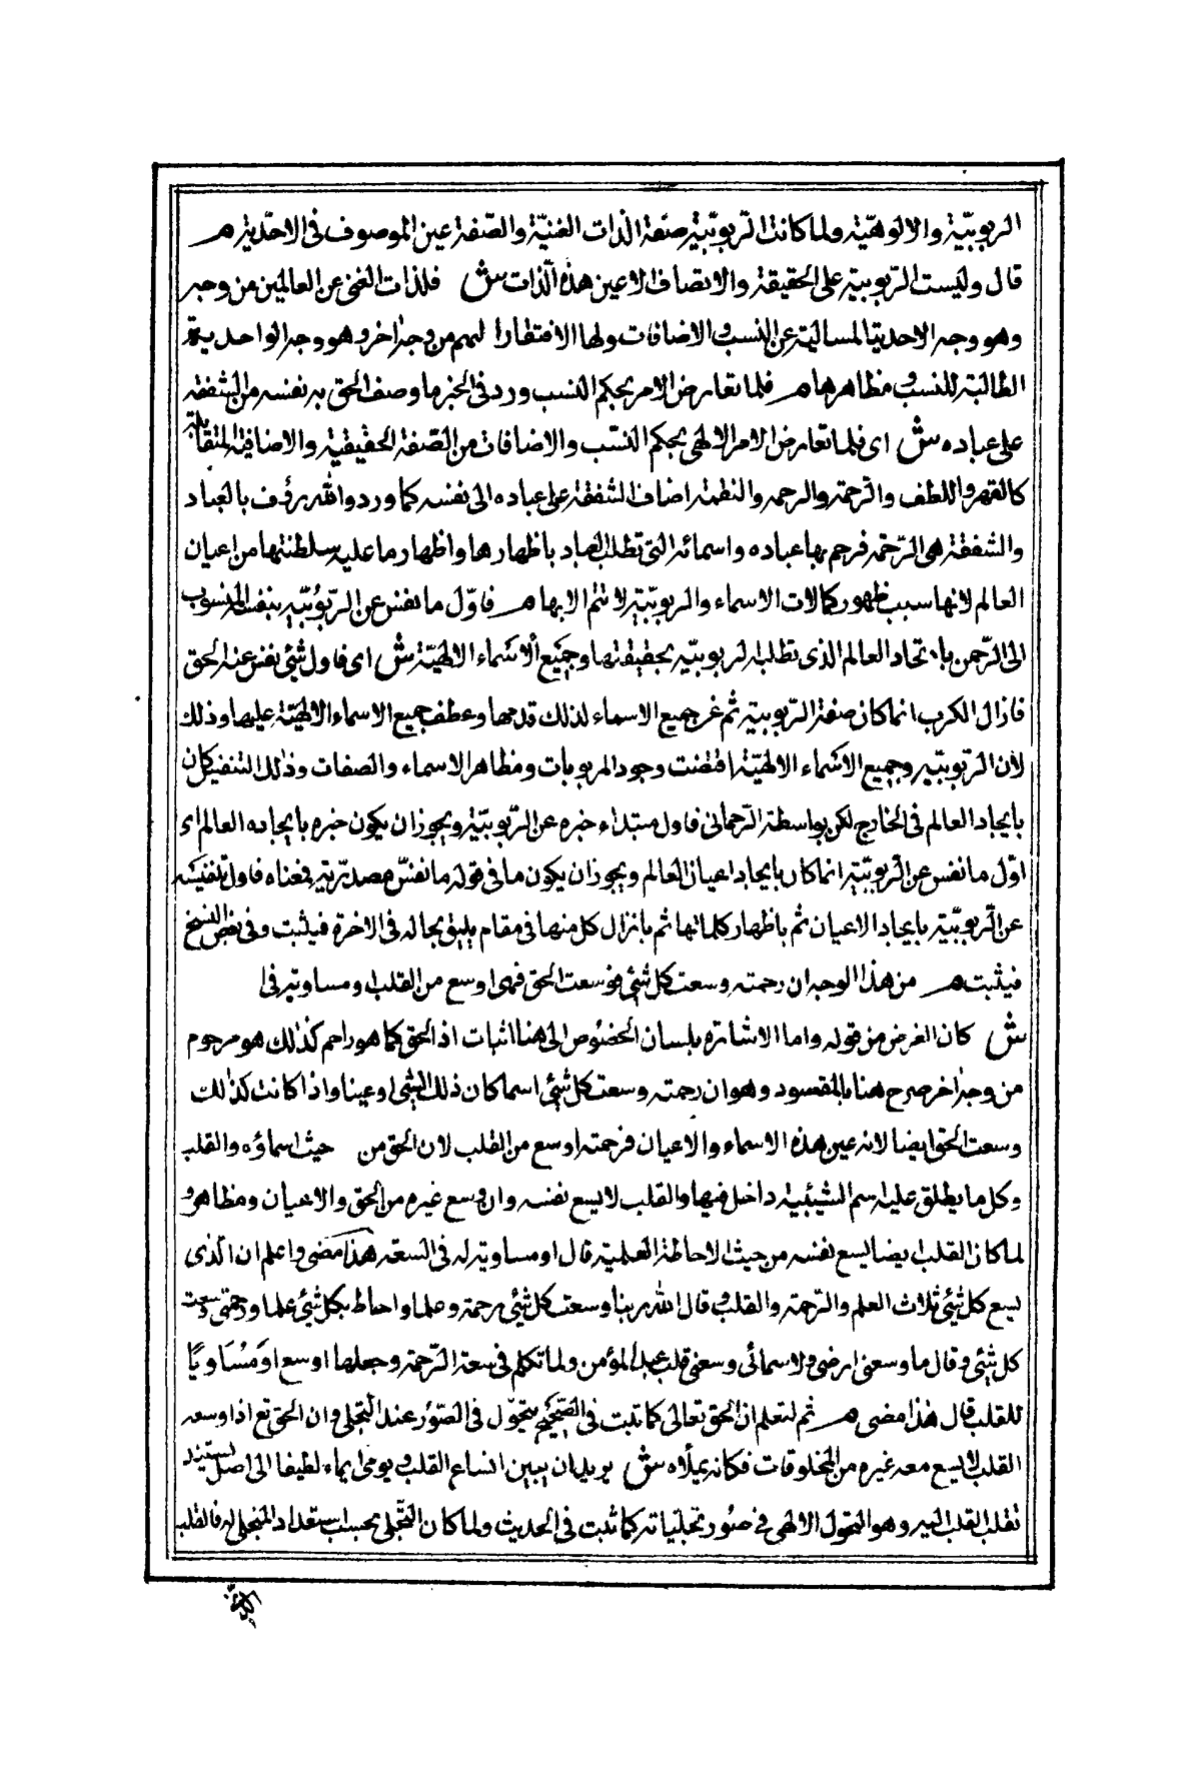 الربوبيّة والالوهيّة ولما كانت الربوبيّة صفة الذات الغنيّة والصفة عين الموصوف فى الاحديّة م
قال وليست الربوبية على الحقيقة والاتصاف الا عين هذه الذات ش فلذات الغنى عن العالمين من وجه
وهو وجه الاحدية المسالبة عن النسب والاضافات ولها الافتقار اليهم من وجه اخر وهو وجه الواحدية
الطالبة للنسب ومظاهرها م فلما تعارض الامر بحكم النسب ورد فى الخبر ما وصف الحق به نفسه من الشفقة
على عباده ش اى فلما تعارض الامر الالهى بحكم النسب والاضافات من الصفة الحقيقية والاضافية المتقابلة
كالقهر واللطف والرّحمة والنقمة اضاف الشفقة على عباده الى نفسه كما ورد والله رؤف بالعباد
والشفقة هى الرّحمة فرحم بها عباده واسمائه التى تطلب العباد باظهارها واظهار ما عليه سلطنتها من اعيان
العالم لانها سبب ظهور كمالات الاسماء والربوبيّة لا تتم الا بها م فاوّل ما نفس عن الربوبيّة بنفسه المنسوب
الى الرّحمن بايجاد العالم الذى تطلبه الربوبيّة بحقيقتها وجميع الاسماء الالهيّة ش اى فاول شئ نفس عنه الحق
فازال الكرب انما كان صفة الرّبوبية ثم عن جميع الاسماء لذلك قدمها وعطف جميع الاسماء الالهيّة عليها وذلك
لان الربوبيّة وجميع الاسماء الالهيّة اقتضت وجود المربوبات ومظاهر الاسماء والصفات وذلك التنفيس كان
بايجاد العالم فى الخارج لكن بواسطة الرّحمانى فاول مبتداء خبره عن الرّبوبيّة ويجوز ان يكون خبره بايجاده العالم اى
اوّل ما نفس عن الرّبوبيّة انما كان بايجاد اعيان العالم ويجوز ان يكون ما فى قوله ما نفّس مصدريّة فمعناه فاول تنفيسه
عن الرّبوبيّة بايجاد الاعيان ثم باظهار كمالاتها ثم بانزال كل منها فى مقام يليق بحاله فى الاخرة فيثبت وفى بعض النسخ
فيثبت م من هذا الوجه ان رحمته وسعت كل شئ فوسعت الحق فهى اوسع من القلب او مساوية له فى ا
ش كان الغرض من قوله واما الاشارة بلسان الخصوص الى هنا اثبات اذ الحق كما هو راحم كذلك هو مرحوم
من وجه اخر صرح هنا بالمقصود وهو ان رحمته وسعت كل شئ اسما كان ذلك الشئ او عينا واذا كانت كذلك
وسعت الحق ايضا لانه عين هذه الاسماء والاعيان فرحمته اوسع من القلب لان الحق من حيث اسماؤه والقلب
وكل ما يطلق عليه اسم الشيئية داخل فيها والقلب لا يسع نفسه وان وسع غيره من الحق والاعيان ومظاهره
لما كان القلب ايضا يسع نفسه من حيث الاحاطة العلمية قال او مساوية له فى السعة هذا مضى واعلم ان الّذى
يسع كل شئ ثلاث العلم والرّحمة والقلب قال الله ربنا وسعت كل شئ رحمة وعلما واحاط بكل شئ علما ورحمتى وسعت
كل شئ وقال ما وسعنى ارضى ولا سمائى وسعنى قلب عبدى المؤمن ولما تكلم فى سعة الرّحمة وجعلها اوسع او مساويًا
للقلب قال هذا مضى م ثم لتعلم ان الحق تعالى كما ثبت فى الصّحيح يتحوّل فى الصّور عند التجلى وان الحق تع اذا وسعه
القلب لا يسع معه غيره من المخلوقات فكانه يملأه ش يريد ان يبين اتساع القلب ويومى ايماء لطيفا الى اصل يستند
تقلب القلب اليه وهو التحول الالهى فى صور تجلياته كما ثبت فى الحديث ولما كان التجلى بحسب استعداد المتجلى له فالقلب